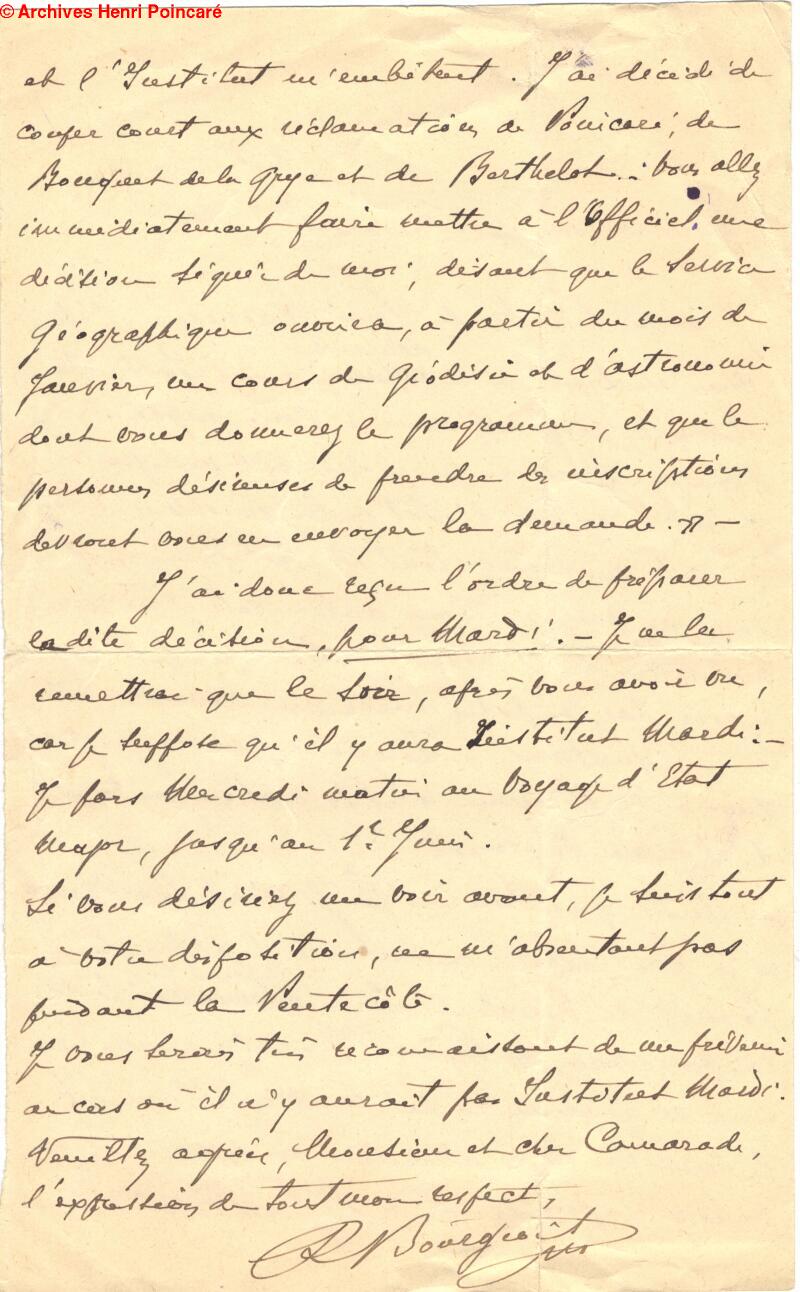 © Archives Henri Poincaré
et l'Institut m'embêtent. J'ai décidé de
couper court aux réclamations de Poincaré, de
Bouquet de la Grye et de Berthelot. : Vous allez
immédiatement faire mettre à l'Officiel, une
décision signée de moi, disant que le Service
Géographique ouvrira, à partir du mois de
Janvier, un cours de Géodésie et d'astronomie
dont vous donnerez le programme, et que les
personnes désireuses de prendre des inscriptions
devront vous en envoyer la demande. » —
J'ai donc reçu l'ordre de préparer
la dite décision, pour Mardi. — Je ne la
remettrai que le Soir, après vous avoir vu,
car je suppose qu'il y aura Institut Mardi. —
Je pars Mercredi matin au Voyage d'Etat
Major, jusqu'au 1er Juin.
Si vous désiriez me voir avant, je suis tout
à votre disposition, ne m'absentant pas
pendant la Pentecôte.
Je vous serais très reconnaissant de me prévenir
au cas où il n'y aurait pas Institut Mardi.
Veuillez agréer, Monsieur et cher Camarade,
l'expression de tout mon respect,
R Bourgeois